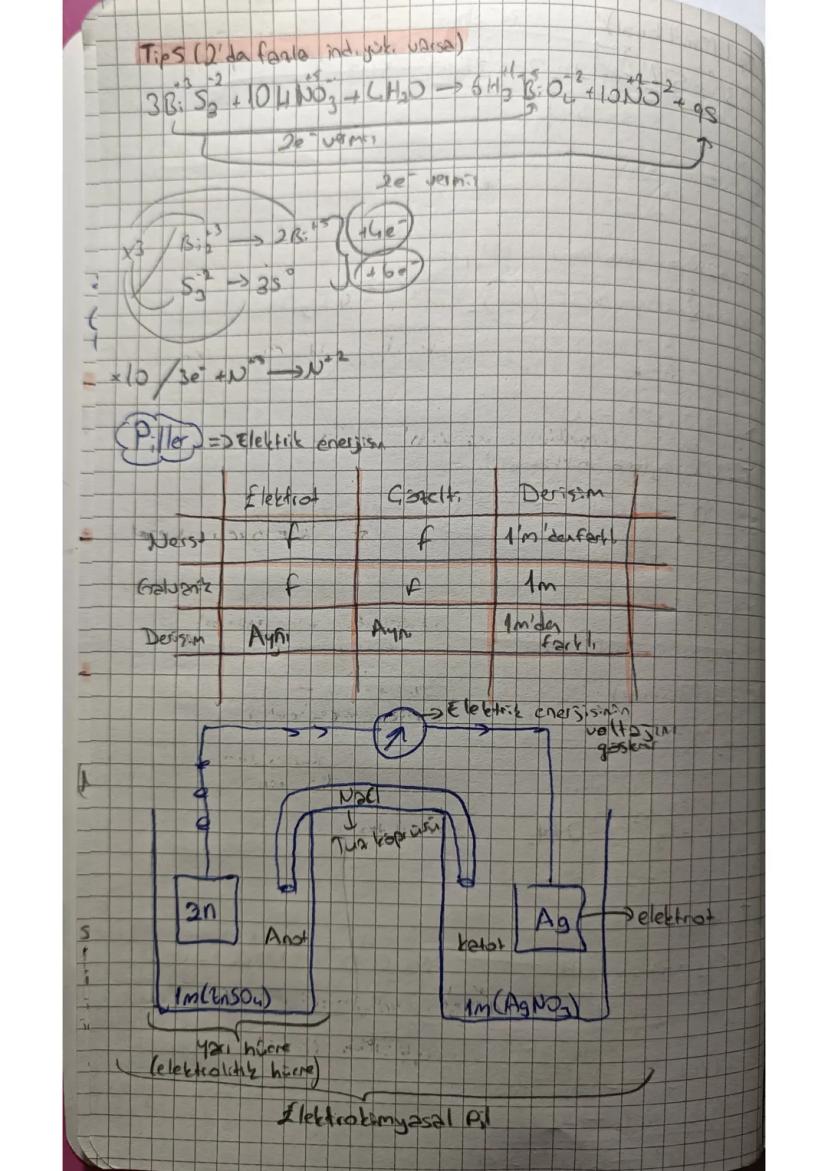 Tip5 (2'da fazla ind. yük. varsa)
+3 -2 +5 +1 +5 -2 +2 -2
3Bi2S3 + 10HNO3 + 4H2O → 6H3BiO4 + 10NO + 9S
2e⁻ vermiş
2e⁻ vermiş
x3 / Bi2+3 → 2Bi+5 +4e⁻
S3-2 → 3S0 +6e⁻
x10 / 3e⁻ + N+5 → N+2
Piller => Elektrik enerjisi
Elektrot Çözelti Derişim
Nerst f f 1m'den farklı
Galvanik f f 1m
Derişim Aynı Aynı 1m'den farklı
→ Elektrik enerjisinin
voltajını
gösterir
NaCl
↓
Tuz köprüsü
Zn
Ag → elektrot
Anot
katot
1m(ZnSO4)
1m(AgNO3)
Yarı hücre
(elektrolitik hücre)
Elektrokimyasal Pil